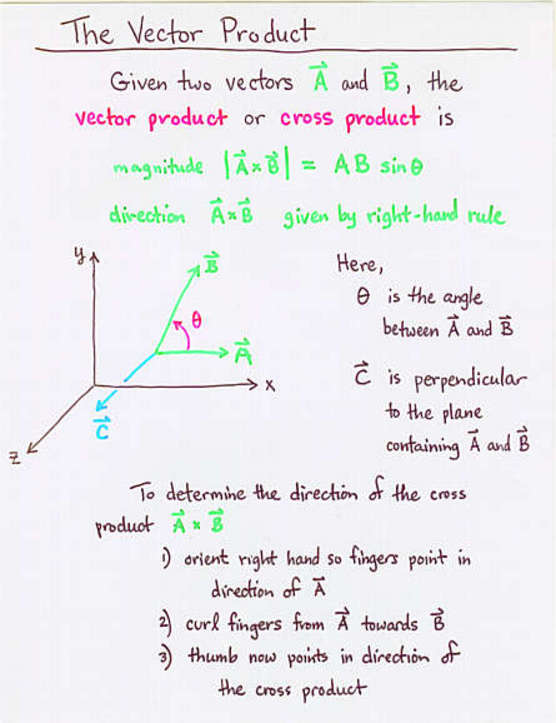 The Vector Product
Given two vectors A⃗ and B⃗, the
vector product or cross product is
magnitude |A⃗×B⃗| = AB sinθ
direction A⃗×B⃗ given by right-hand rule
y
B⃗
θ
A⃗
x
C⃗
z
Here,
θ is the angle
between A⃗ and B⃗
C⃗ is perpendicular
to the plane
containing A⃗ and B⃗
To determine the direction of the cross
product A⃗ × B⃗
1) orient right hand so fingers point in
direction of A⃗
2) curl fingers from A⃗ towards B⃗
3) thumb now points in direction of
the cross product